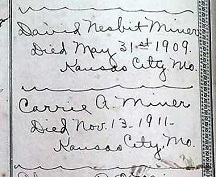 David Nesbit Miner
Died May 31st 1909.
Kansas City, Mo.
Carrie A. Miner
Died Nov. 13. 1911-
Kansas City, Mo.